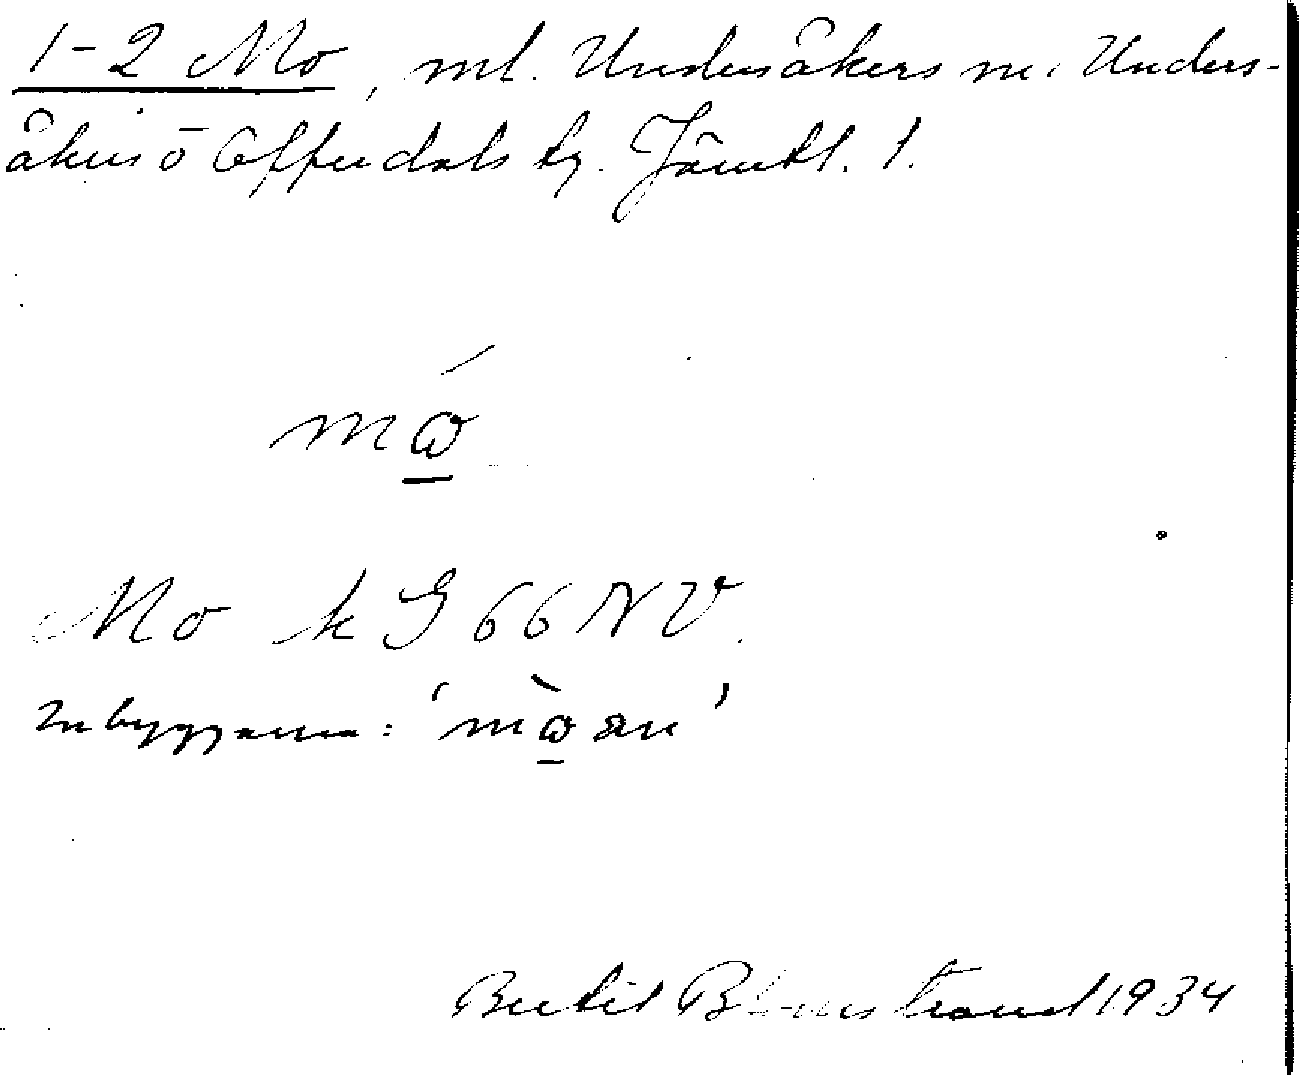 1-2 Mo, ml. Undersåkers sn. Unders-
åkers o Offerdals tg. Jämtl. l.
mώ̲
Mo k G 66 NV.
Inbyggarna: 'mὼ̲an'
Bertil Blomstrand 1934